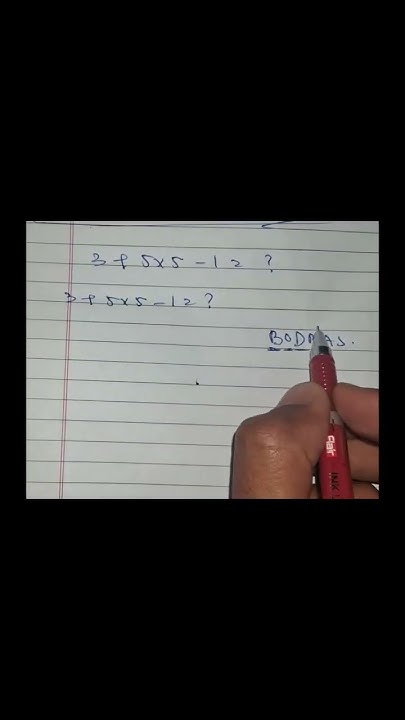 3 + 5 x 5 - 1 = ?
3 + 5 x 5 - 1 = ?
BODMAS.
Flair